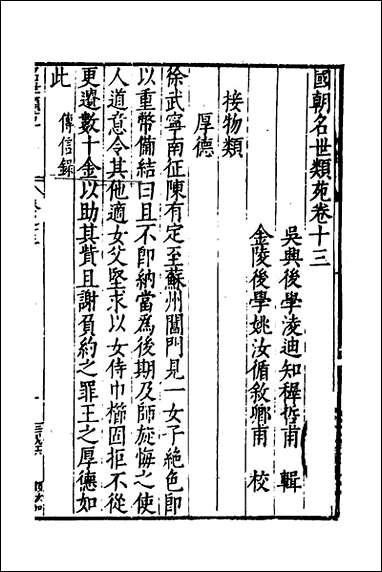 國朝名世類苑卷十三
吳興後學凌迪知穉哲甫 輯
金陵後學姚汝循敘卿甫 校
接物類
厚德
徐武寧南征陳有定至蘇州閶門見一女子絕色即
以重幣備結曰且不即納當為後期及師旋悔之使
人道意令其他適女父堅求以女侍巾櫛固拒不從
更邀數十金以助其貲且謝負約之罪王之厚德如
此 傳信錄